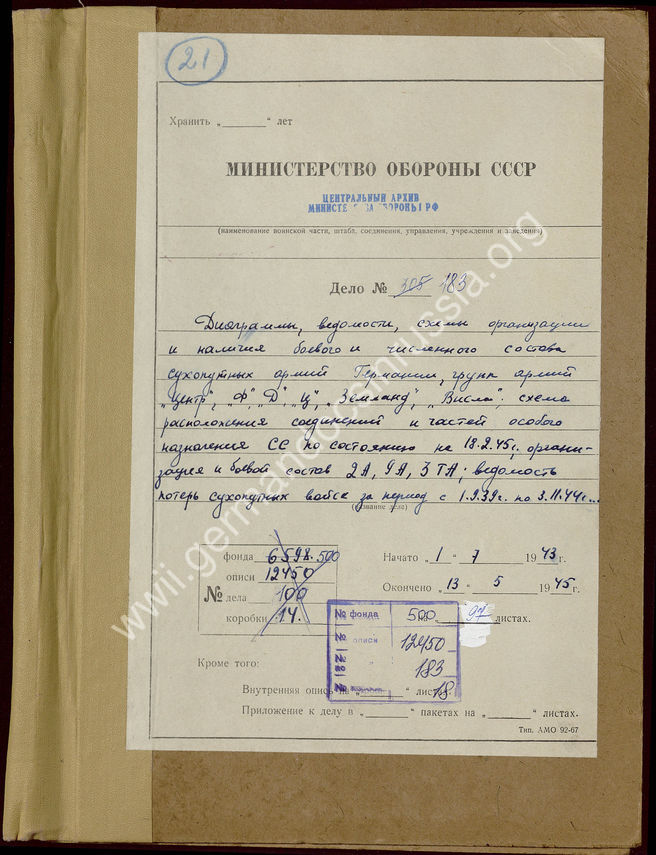 21
Хранить „ “ лет
МИНИСТЕРСТВО ОБОРОНЫ СССР
ЦЕНТРАЛЬНЫЙ АРХИВ
МИНИСТЕ ВА ОБОРОНЫ РФ
(наименование воинской части, штаба, соединения, управления, учреждения и заведения)
Дело № 305 183
Диограммы, ведомости, схемы организации
и наличия боевого и численного состава
сухопутных армий Германии, групп армий
„Центр“, „Ф“, „Д“, „Ц“, „Земланд“, „Висла“; схема
расположения соединений и частей особого
назначения СС по состоянию на 18.2.45г.; органи-
зация и боевой состав 2А, 9А, 3ТА; ведомость
потерь сухопутных войск за период с 1.9.39г. по 3.11.44г.
(название дела)
№
фонда 6598. 500
описи 12450
дела 100
коробки 14.
Начато „1“ 7 1943 г.
Окончено „13“ 5 1945 г.
97 листах.
№ фонда 500
№ описи 12450
№ 183
№ 18
Кроме того:
Внутренняя опись на „ “ листах
Приложение к делу в „ “ пакетах на „ “ листах.
Тип. АМО 92-67
wwii.germandocsinrussia.org